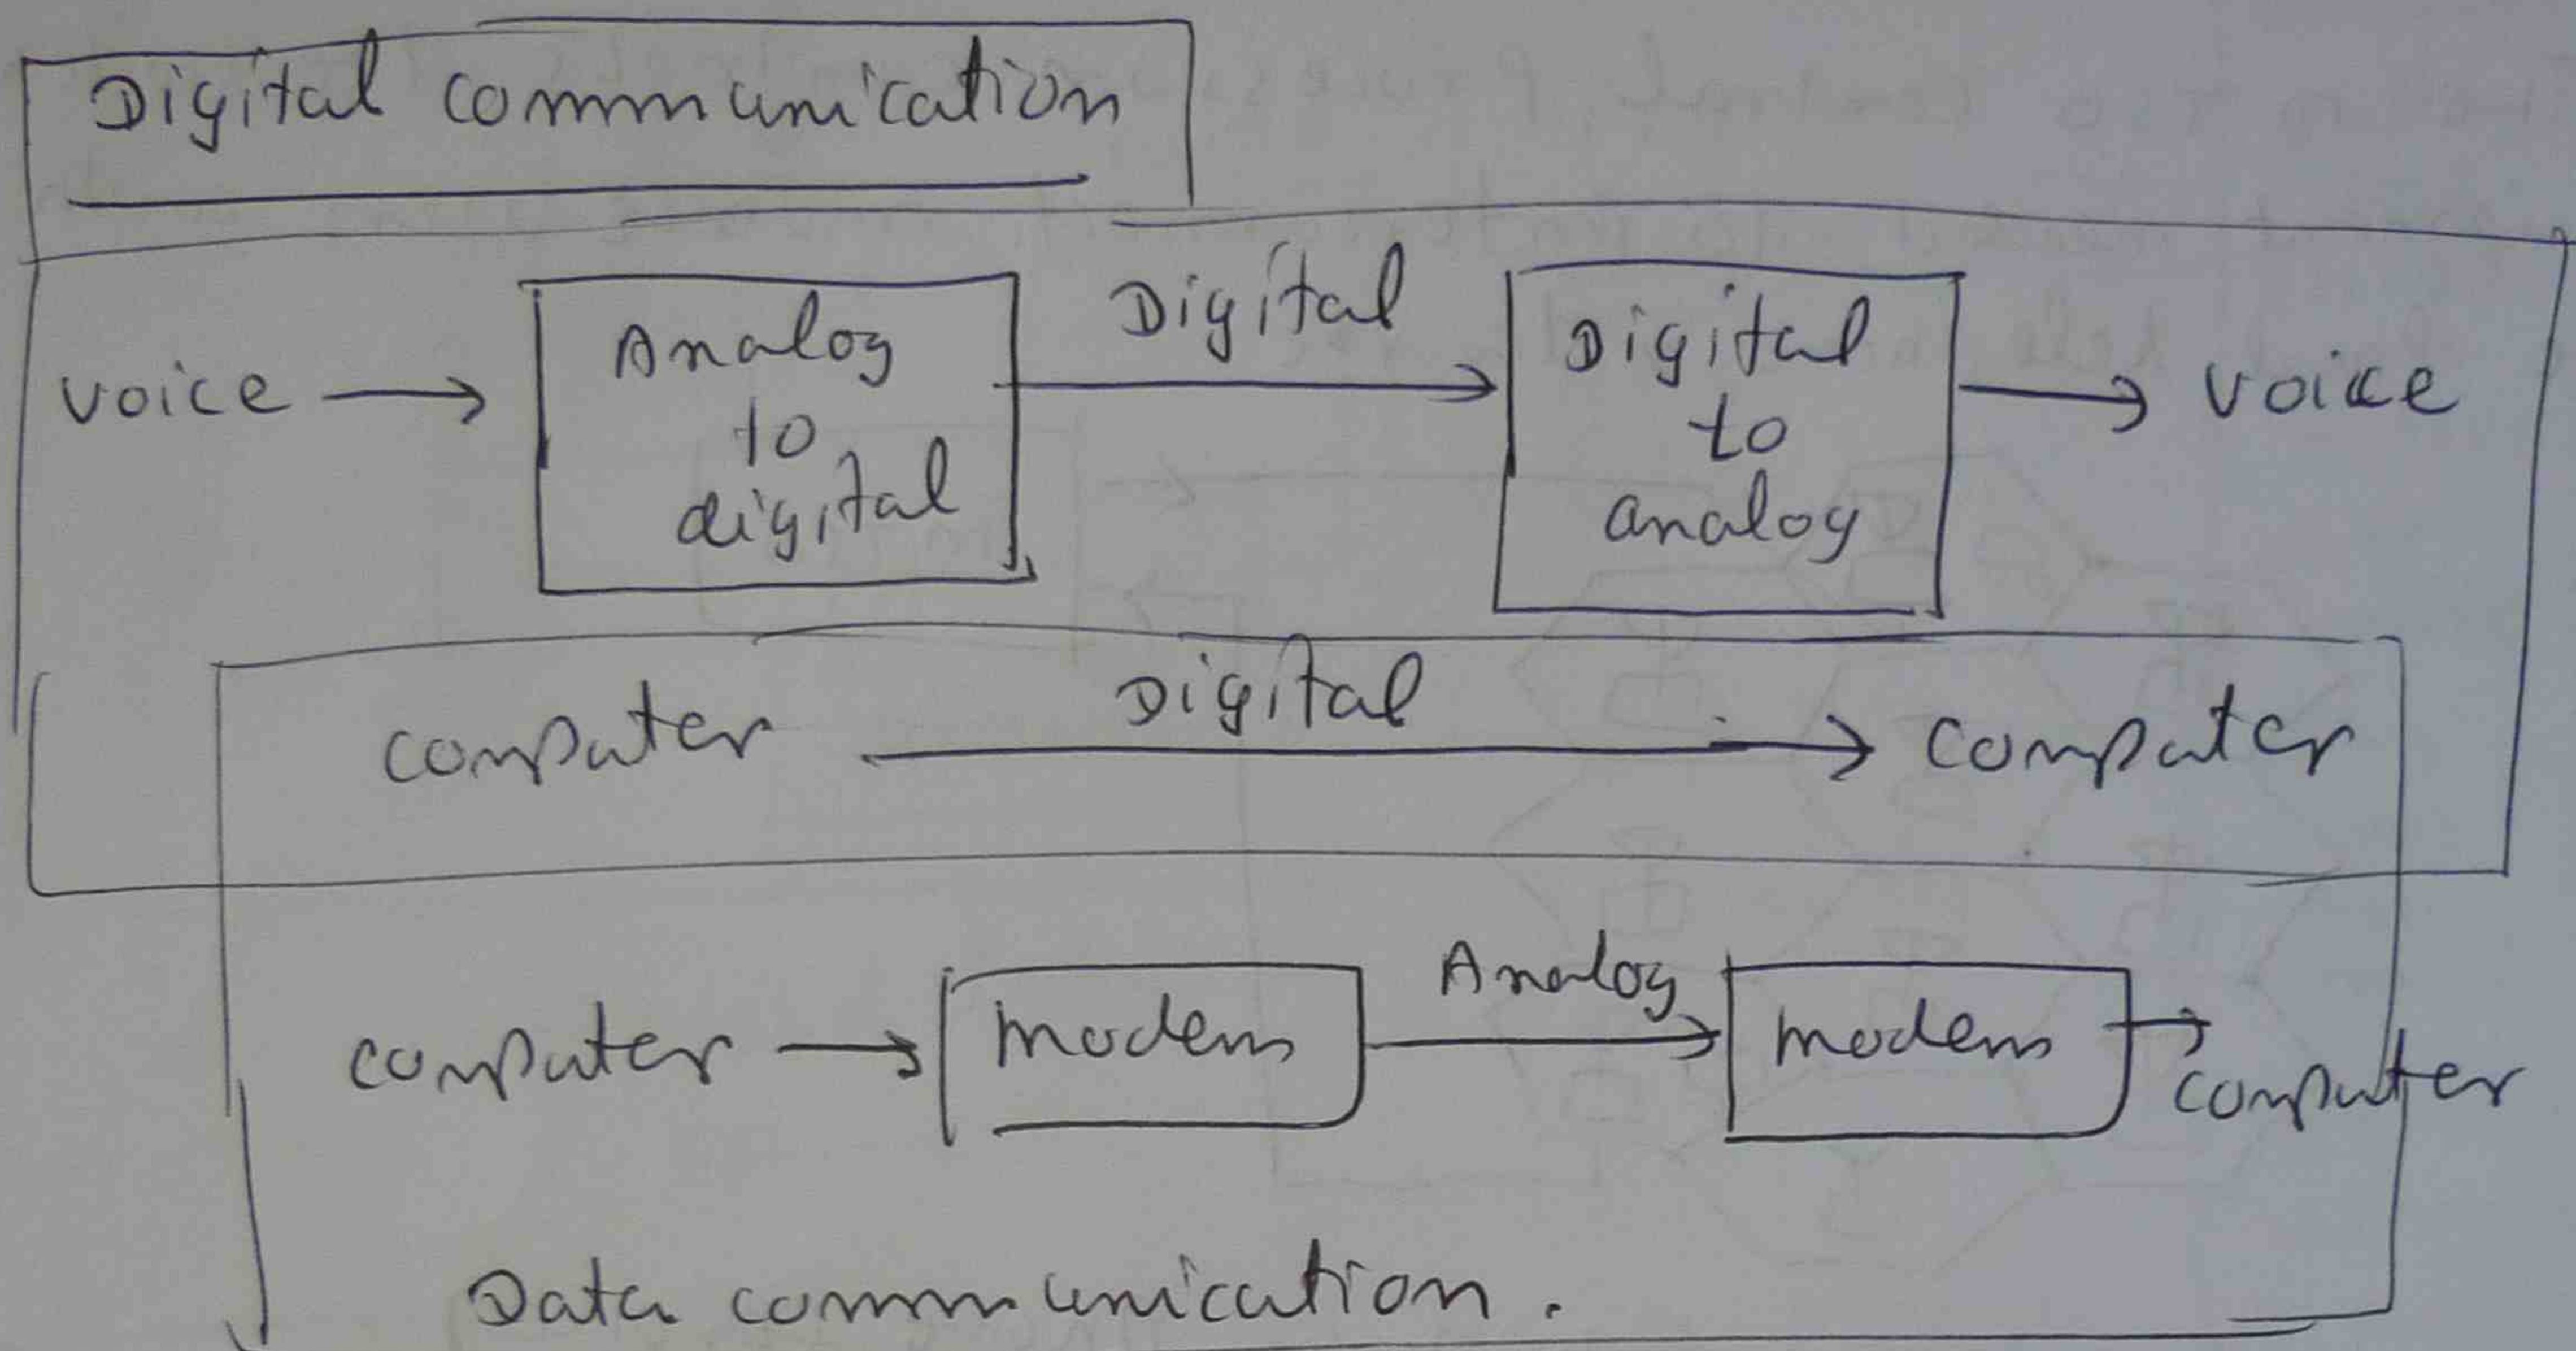 Digital communication
voice → Analog to digital Digital → Digital to analog → voice
computer Digital → computer
computer → modem Analog → modem → computer
Data communication.